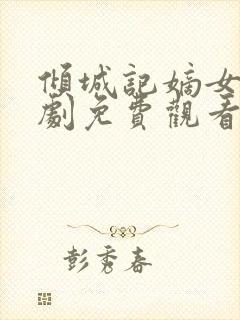 傾城記嫡女
劇免費觀看
彭秀春